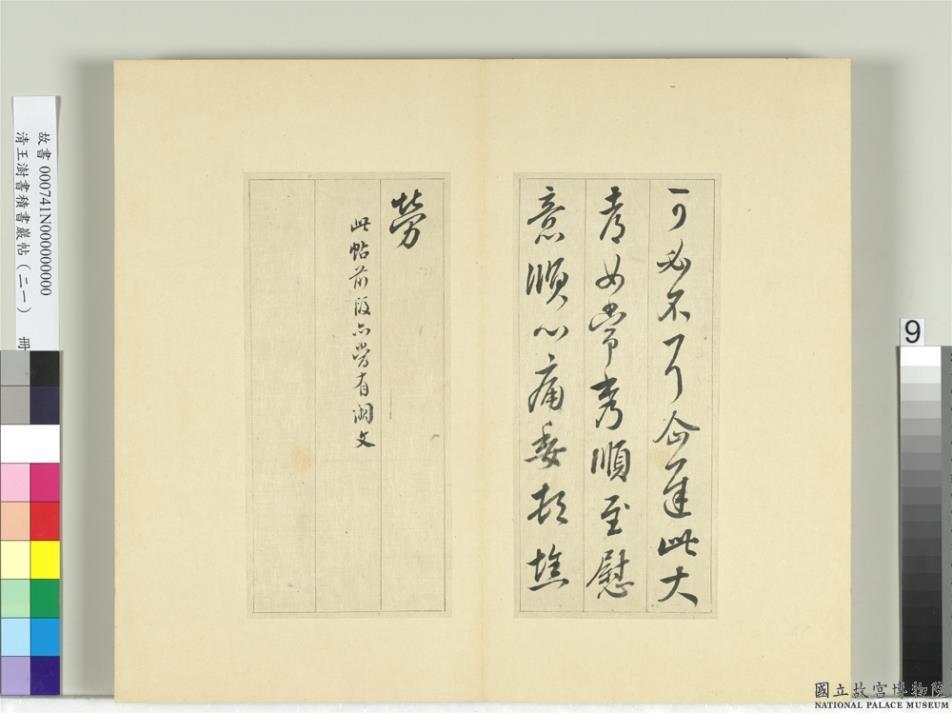 可必不可企遲此大
孝女常孝順至慰
意順心痛委頓憔
勞
此帖前後亦當有闕文
故書 000741N000000000
清王澍書積書巖帖(二一) 冊
9
國立故宮博物院
NATIONAL PALACE MUSEUM